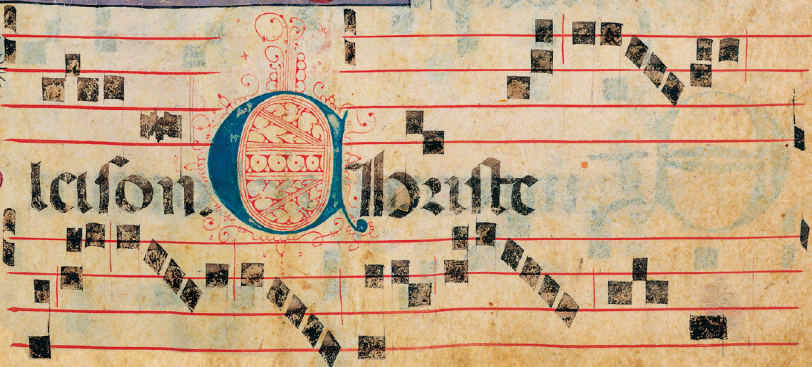 leison. Christe